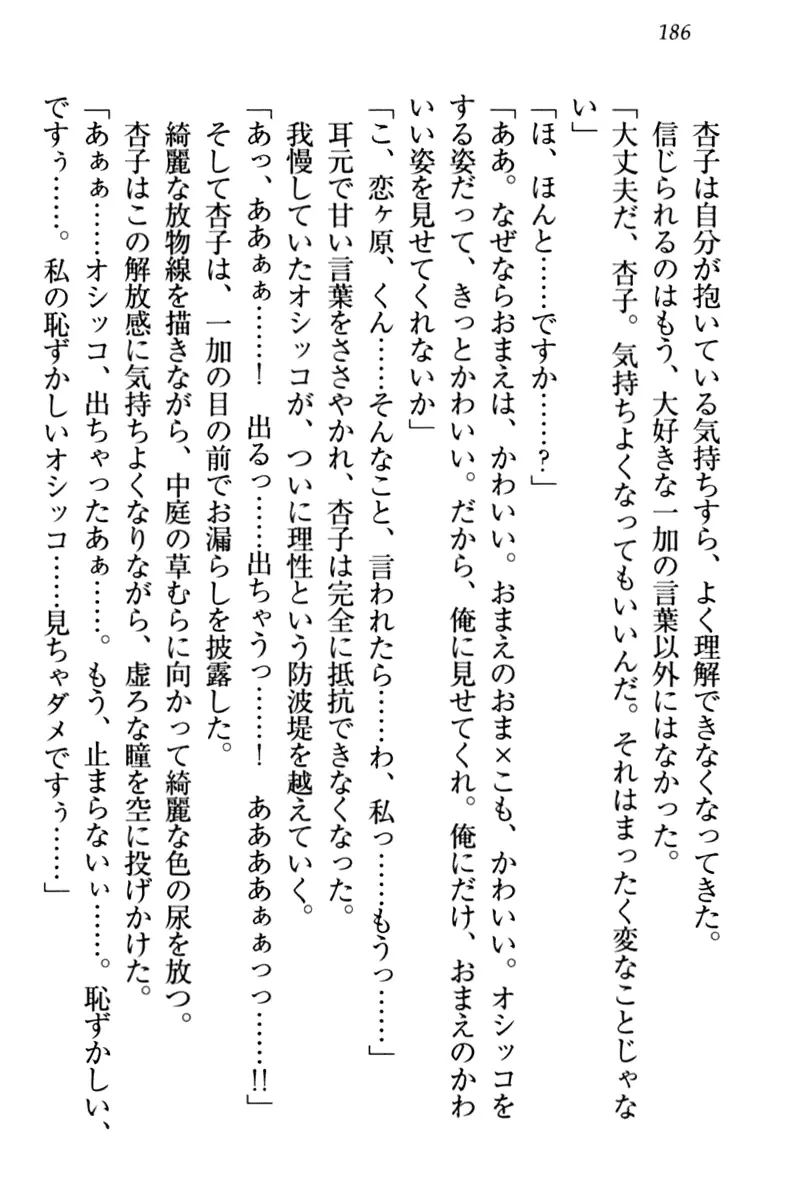 186
杏子は自分が抱いている気持ちすら、よく理解できなくなってきた。
信じられるのはもう、大好きな一加の言葉以外にはなかった。
「大丈夫だ、杏子。気持ちよくなってもいいんだ。それはまったく変なことじゃな
い」
「ほ、ほんと……ですか……?」
「ああ。なぜならおまえは、かわいい。おまえのおま×こも、かわいい。オシッコを
する姿だって、きっとかわいい。だから、俺に見せてくれ。俺にだけ、おまえのかわ
いい姿を見せてくれないか」
「こ、恋ヶ原、くん……そんなこと、言われたら……わ、私っ……もうっ……」
耳元で甘い言葉をささやかれ、杏子は完全に抵抗できなくなった。
我慢していたオシッコが、ついに理性という防波堤を越えていく。
「あっ、ああぁぁ……! 出るっ……出ちゃうっ……! ああああぁぁっっ……!!」
そして杏子は、一加の目の前でお漏らしを披露した。
綺麗な放物線を描きながら、中庭の草むらに向かって綺麗な色の尿を放つ。
杏子はこの解放感に気持ちよくなりながら、虚ろな瞳を空に投げかけた。
「あぁぁ……オシッコ、出ちゃったあぁ……。もう、止まらないぃ……。恥ずかしい、
ですぅ……。私の恥ずかしいオシッコ……見ちゃダメですぅ……」